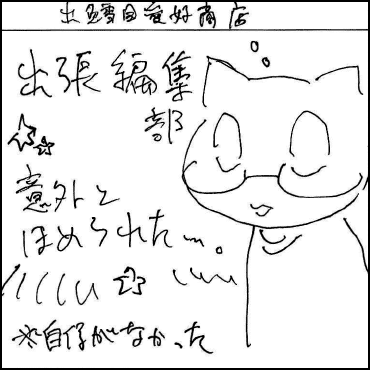 出鱈目愛好商店
出張編集
部
意外と
ほめられた…。
※自信がなかった